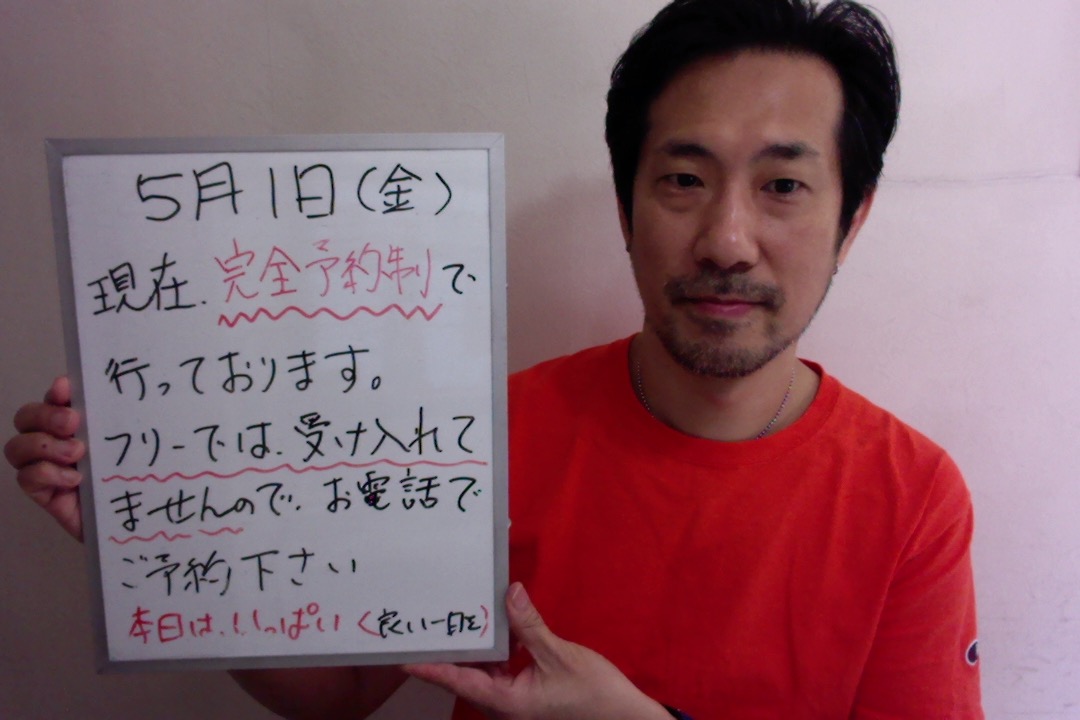 5月1日(金)
現在.完全予約制で
行っております。
フリーでは.受け入れて
ませんので.お電話で
ご予約下さい
本日は.いっぱい(良い一日を)